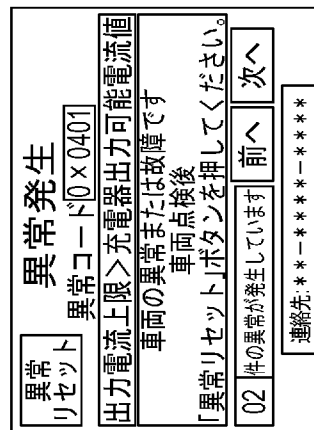 異常
リセット
異常発生
異常コード 0×0401
出力電流上限>充電器出力可能電流値
車両の異常または故障です
車両点検後
「異常リセット」ボタンを押してください。
02 件の異常が発生しています 前へ 次へ
連絡先:**-****-****